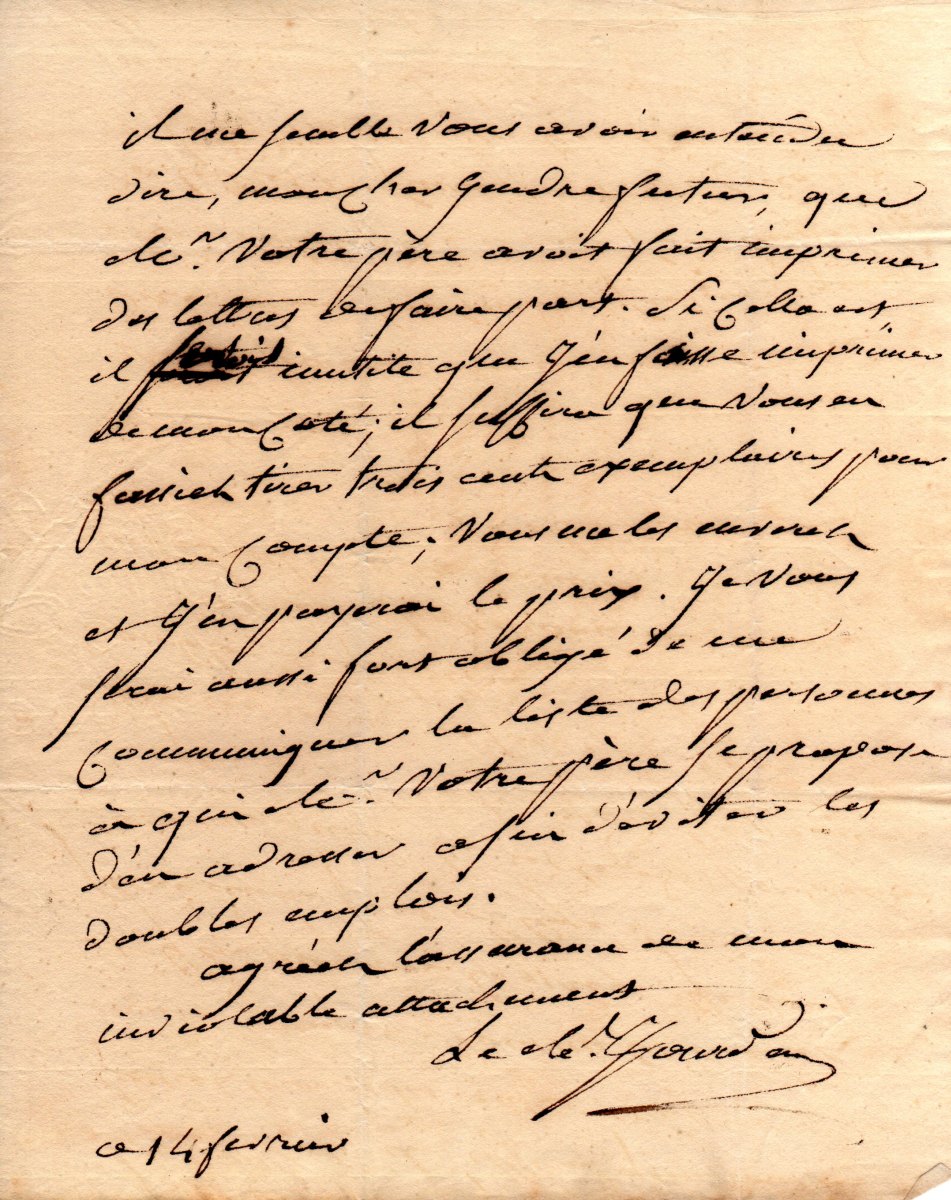 il me semble vous avoir entendu
dire, mon cher Gendre futur, que
Mr. Votre père avoit fait imprimer
des lettres de faire part. Si cella est
il seroit inutile que J'en fasse imprimer
de mon Coté; il suffira que Vous en
fassiez tirer trois cents exemplaires pour
mon Compte; Vous me les enverez
et J'en payerai le prix. Je Vous
serai aussi fort obligé de me
Communiquer la liste des personnes
à qui Mr. Votre père se propose
d'en adresser afin d'éviter les
doubles emplois.
agréez l'assurance de mon
inviolable attachement
Le Mal. Jourdan
ce 14 fevrier